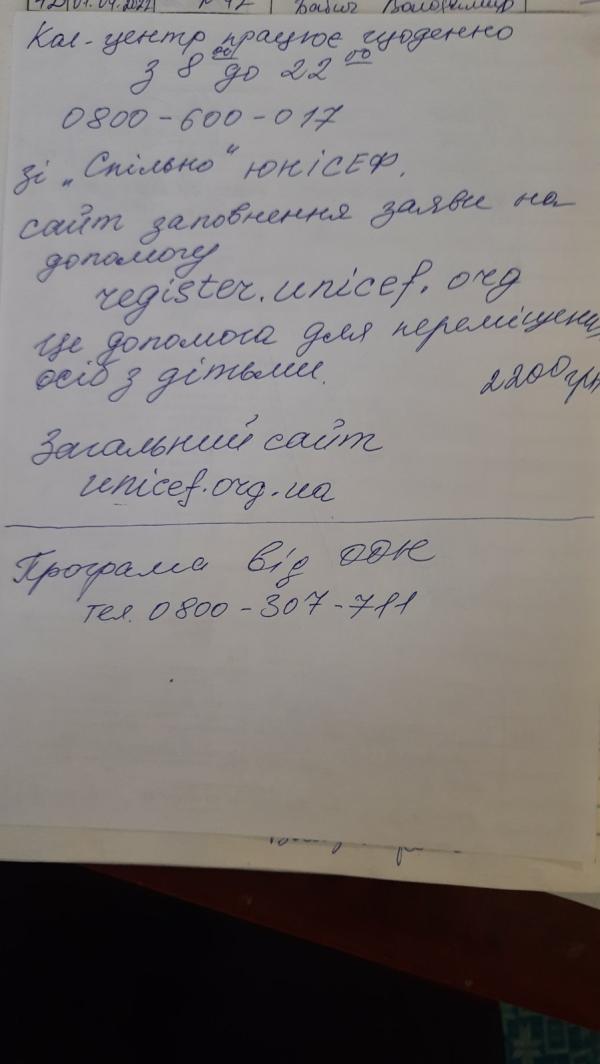 01.04.2022 Бабич Володимир
Кол-центр працює щоденно
з 8 00 до 22 00
0800-600-017
зі „Спільно" ЮНІСЕФ.
сайт заповнення заяви на
допомогу
register.unicef.org
Це допомога для переміщених
осіб з дітьми.
2200 грн
Загальний сайт
unicef.org.ua
Програма від ООН
тел. 0800-307-711